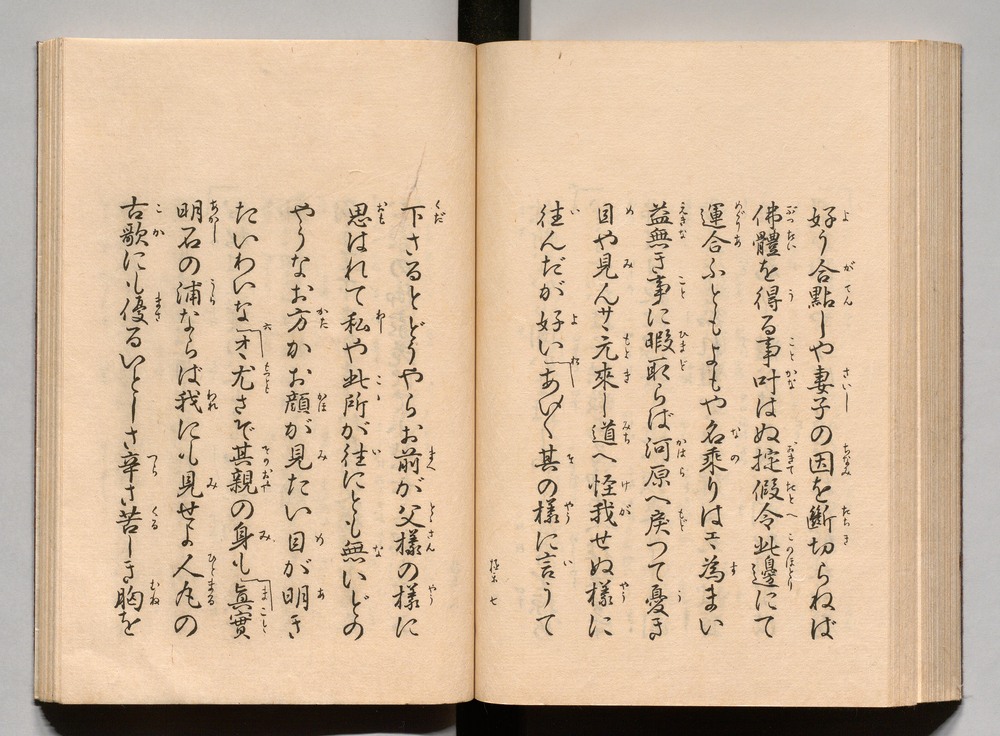 好う合點しや妻子の因を斷切らねば
佛體を得る事叶はぬ掟假令此邊にて
運合ふともよもや名乘りはヱ為まい
益無き事に暇取らば河原へ戻つて憂き
目や見んサヽ元來し道へ怪我せぬ樣に
往んだが好いあい〱其の樣に言うて
下さるとどうやらお前が父樣の樣に
思はれて私や此所が往にとも無いどの
やうなお方かお顔が見たい目が明き
たいわいなオヽ尤さぞ其親の身も眞實
明石の浦ならば我にも見せよ人丸の
古歌にも優るいとしさ辛さ苦しき胸を